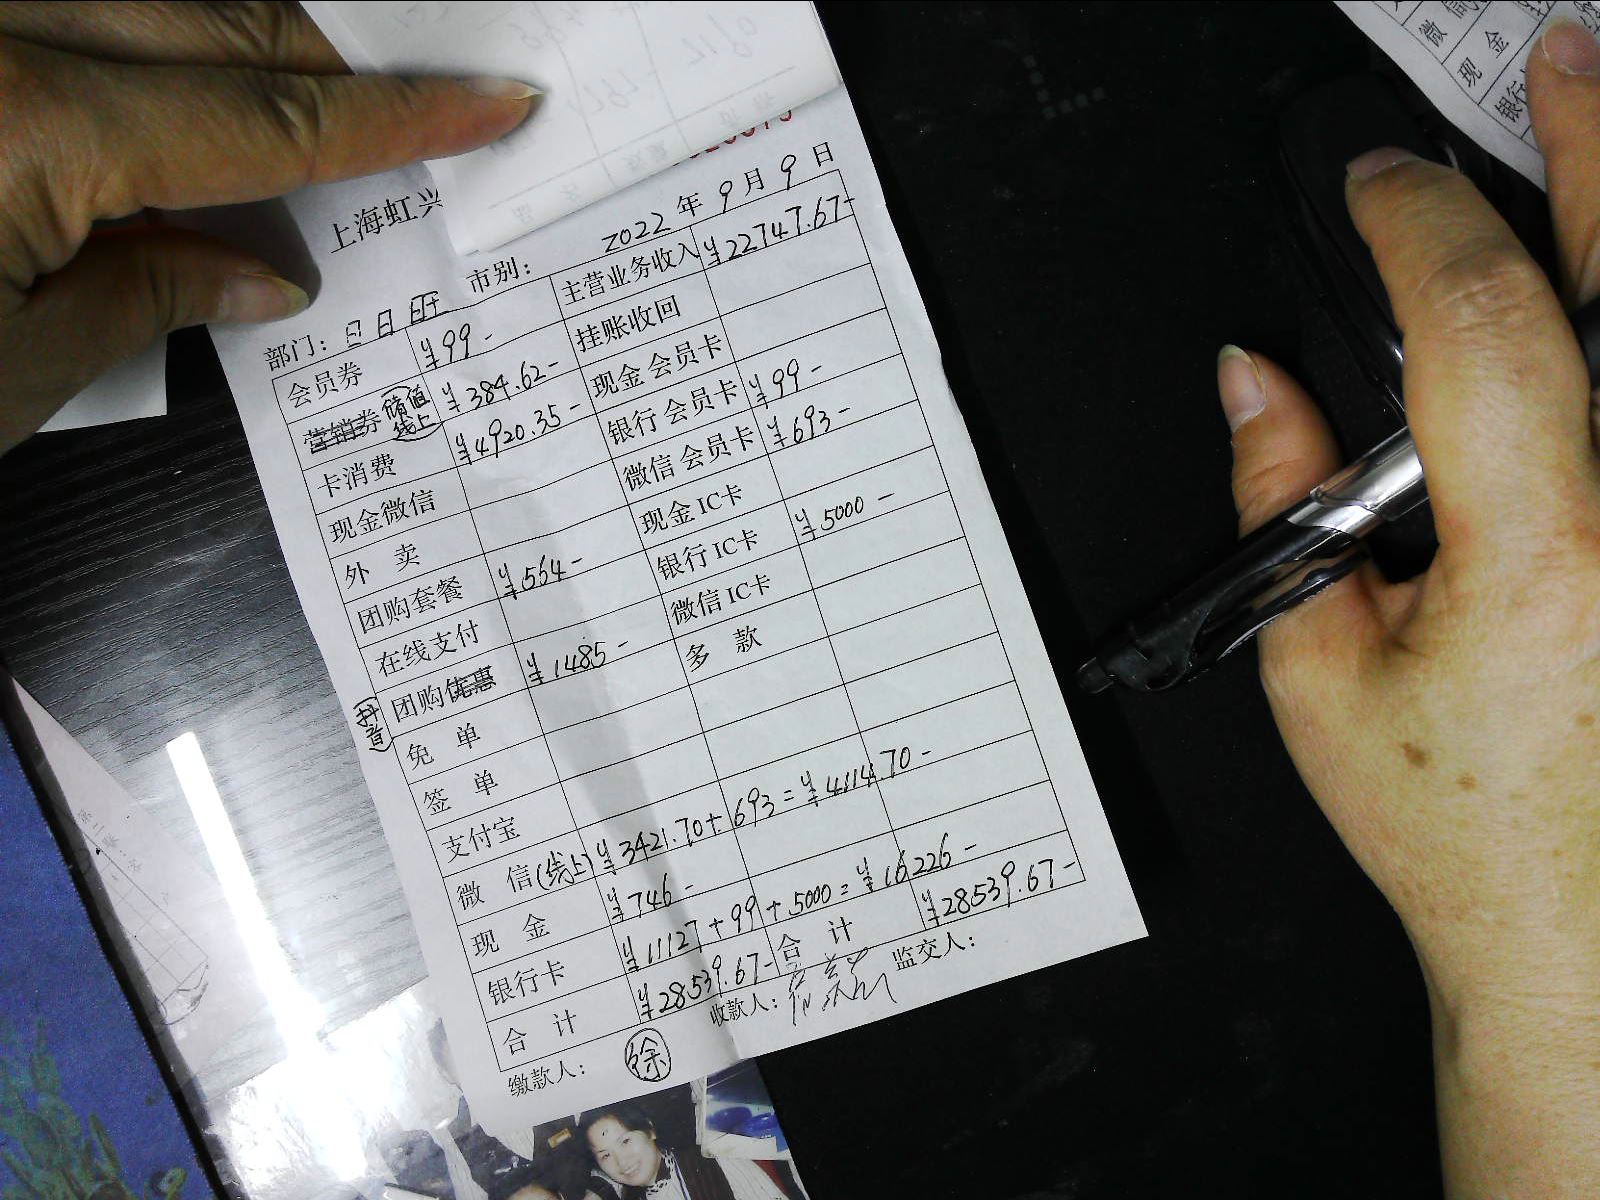 上海虹兴
部门：日日旺 市别： 2022 年 9 月 9 日
会员券 ¥99- 主营业务收入 ¥22747.67-
营销券(储值线上) ¥384.62- 挂账收回
卡消费 ¥4920.35- 现金 会员卡
现金微信 银行 会员卡 ¥99-
外 卖 微信 会员卡 ¥693-
团购套餐 ¥564- 现金 IC卡
在线支付 银行 IC卡 ¥5000-
(抖音) 团购优惠 ¥1485- 微信 IC卡
免 单 多 款
签 单
支付宝
微 信(线上) ¥3421.70+693=¥4114.70-
现 金 ¥746-
银行卡 ¥11127+99+5000=¥16226-
合 计 ¥28539.67- 合 计 ¥28539.67-
缴款人： 徐 收款人： 监交人：
微
现 金
银行